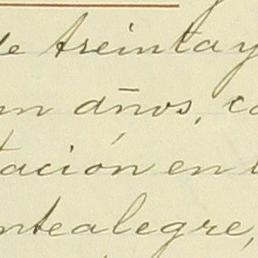 de treinta y
un años, ca
tación en l
ntealegre,